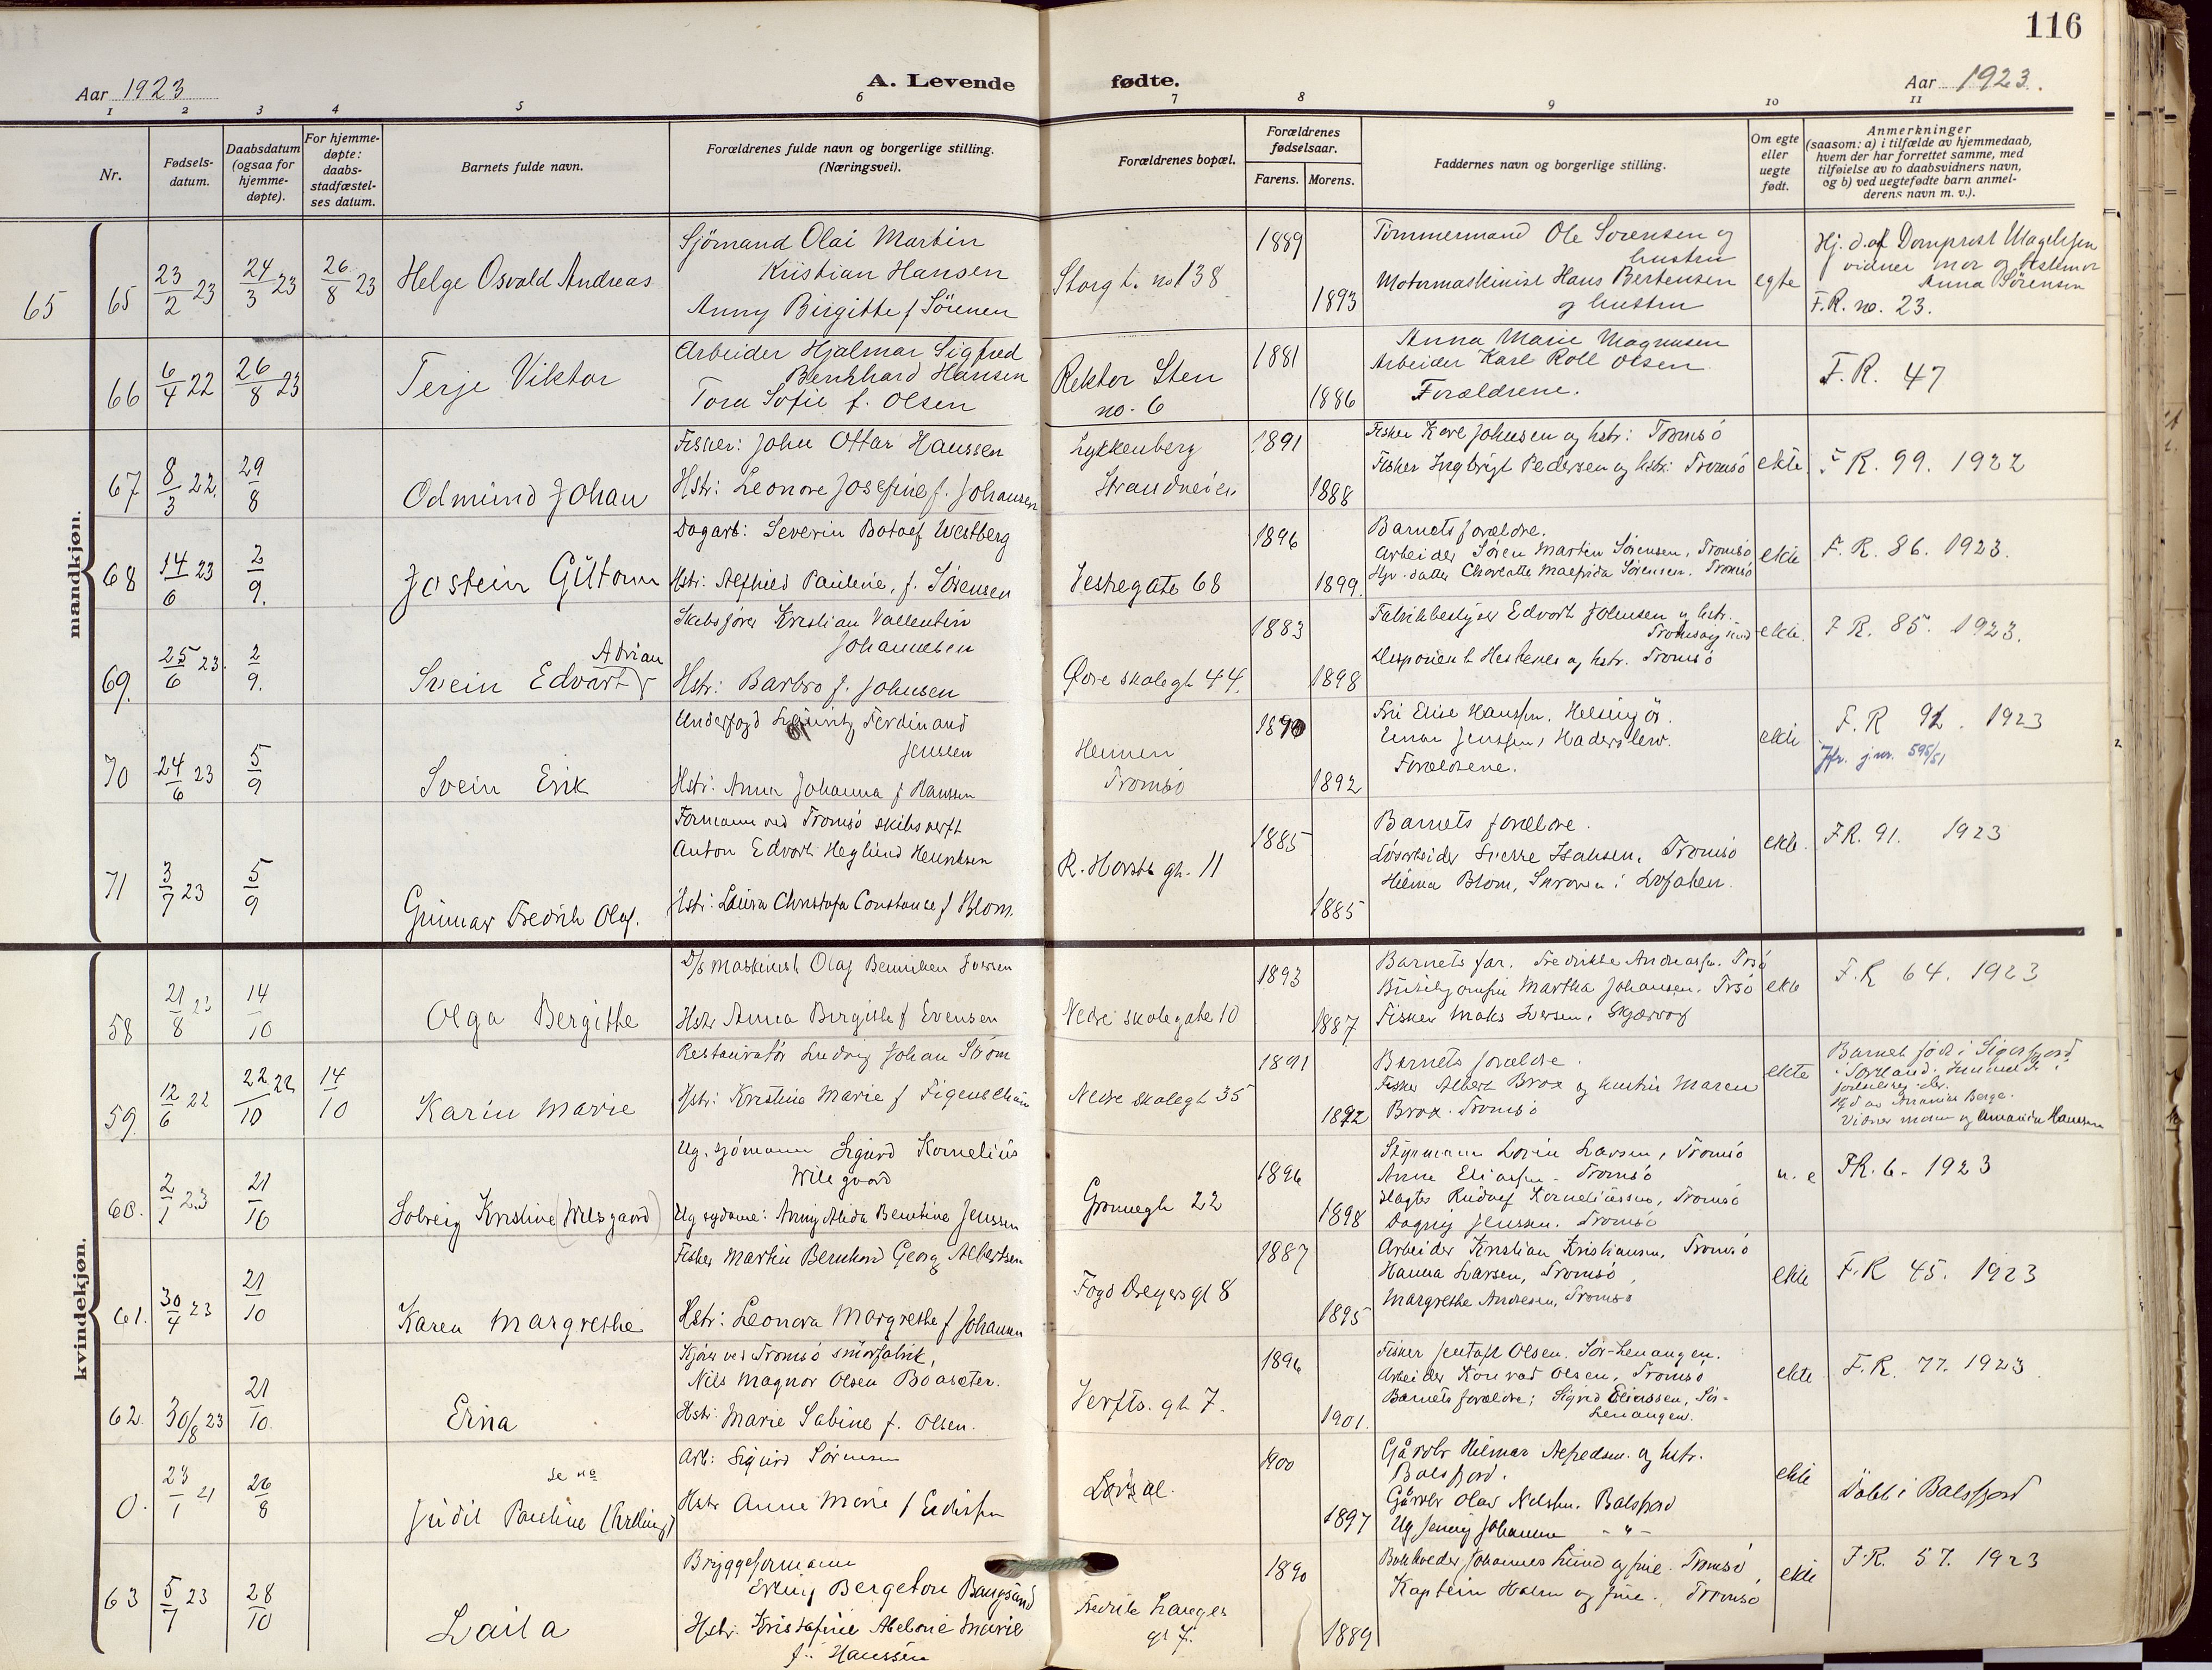 116
Aar 1923
A. Levende
fødte.
Aar 1923.
1 2 3 4 5 6 7 8 9 10 11
Nr.
Fødsels-
datum.
Daabsdatum
(ogsaa for
hjemme-
døpte).
For hjemme-
døpte:
daabs-
stadfæstel-
ses datum.
Barnets fulde navn.
Forældrenes fulde navn og borgerlige stilling.
(Næringsvei).
Forældrenes bopæl.
Forældrenes
fødselsaar.
Farens. Morens.
Faddernes navn og borgerlige stilling.
Om egte
eller
uegte
født.
Anmerkninger
(saasom: a) i tilfælde av hjemmedaab,
hvem der har forrettet samme, med
tilføielse av to daabsvidners navn,
og b) ved uegtefødte barn anmel-
derens navn m. v.).
mandkjøn.
65
65
23/2 23
24/3 23
26/8 23
Helge Osvald Andreas
Sjömand Olai Martin
Kristian Hansen
Anny Birgitte f
Storgt. no 138
1889
1893
Tømmermand Ole Sorensen og
hustru
Motormaskinist Hans Bertensen
og hustru
egte
Hj. d. af Domprost
vidner mor og
Anna Sörensen
F.R. no. 23.
66
6/4 22
26/8 23
Terje Viktor
Arbeider Hjalmar Sigfred
Bernhard Hansen
Tora Sofie f. Olsen
Rektor Sten
no. 6
1881
1886
Anna Marie Magnusen
Arbeider Karl Roll Olsen
Forældrene.
F.R. 47
67
8/3 22.
29/8
Odmund Johan
Fisker: John Ottar Hanssen
Hstr: Leonore Josefine f. Johansen
Lykkenberg
Strandveien
1891
1888
Fisker Kore Johnsen og hstr: Tromsö
Fisker Ingbrigt Pedersen og hstr. Tromsö
ekte.
F R. 99. 1922
68
14/6 23
2/9.
Jostein
Dagarb: Severin Botolf Westberg
Hstr: Alfhild Pauline, f. Sörensen
Vestregate 68
1896
1899.
Barnets forældre.
Arbeider Sören Martin Sörensen, Tromsö
Charlotte Sörensen. Tromsö
ekte
F. R. 86. 1923.
69.
25/6 23.
2/9.
Adrian
Svein Edvart
Skibsförer Kristian Vallentin
Johannesen
Hstr: Barbro f. Johnsen
Övre skolegt 44.
1883
1898
Fabrikbestyrer Edvart Johnsen og hstr.
Disponent Hestenes og hstr. Tromsö
ekte.
F R. 85. 1923.
70
24/6 23
5/9
Svein Erik
Underfogd Ferdinand
Jenssen
Hstr: Anna Johanna f Hanssen
Tromsö
1890
1892
Frk Elise Hanssen. Helsingör.
Einar Jenssen, Haderslev.
Forældrene.
ekte
F. R 92. 1923
Jfr. j.nr. 595/51
71
3/7 23
5/9
Gunnar Fredrik Olaf.
Formann ved Tromsö skibsverft
Anton Edvart Heglund Henriksen
Hstr: Laura Christofa Constance f Blom.
R. Horsts gt. 11
1885
1885
Barnets forældre.
Lösarbeider Sverre Isaksen, Tromsö
Hilma Blom,
ekte.
F.R. 91. 1923
kvindekjøn.
58
21/8 23
14/10
Olga Bergitte
D/S Maskinist Olaf Iversen
Hstr Anna Birgitte f Evensen
Nedre skolegate 10
1893
1887
Barnets far. Fredrikke Andreassen. Trsö
Martha Johansen. Trsö
Fisker Maks Iversen, Skjærvöy
ekte
F. R 64. 1923
59.
12/6 22
22/10 22
14/10
Karin Marie
Restauratör Ludvig Johan Ström
Hstr: Kristine Marie f Figenschau
Nedre skolegt 35
1891
1892
Barnets forældre.
Fisker Albert Brox og hustru Maren
Brox. Tromsö
ekte
Barnet födt i Sigerfjord
Sortland.
Vidner moren og Amanda Hanssen
60.
2/1 23
21/10
Solveig Kristine (Wilsgaard)
Ug. sjömann Sigurd Kornelius
Wilsgaard
Ug sydame: Anny Alida Bentine Jenssen
Grönnegt 22
1896
1898
Styrmann Lorin Larsen, Tromsö
Anna Eliassen. Tromsö
Rudolf Korneliussen, Tromsö
Dagny Jenssen. Tromsö
u. e
F.R. 6. 1923
61.
30/4 23
21/10
Karen Margrethe
Fisker Martin Bernhard Georg Albertsen
Hstr: Leonora Margrethe f Johansen
Fogd Dreyers gt 8
1887
1895
Arbeider Kristian Kristiansen, Tromsö
Hanna Larsen, Tromsö
Margrethe Andresen, Tromsö
ekte
F.R 45. 1923
62.
30/8 23
21/10.
Eina
Kjörer ved Tromsö smörfabrik,
Nils Magnor Olsen Boasæter.
Hstr: Marie Sabine f. Olsen.
Verfts. gt 7.
1896
1901.
Fisker Olsen. Sör-Lenangen.
Arbeider Konrad Olsen, Tromsö
Barnets forældre; Sigrid Eliassen, Sör-
Lenangen.
ekte
F. R. 77. 1923
0.
23/1 21
26/8
se
Judit Pauline
Arb: Sigurd Sörensen
Hstr Anna Marie f
1900
1897
Gårdbr Hilmar Alfredsen. og hstr.
Balsfjord.
Gårdbr Olav Nilssen. Balsfjord
Ug Jenny Johansen - " -
ekte
Döbt i Balsfjord
63
5/7 23
28/10
Laila
Bryggeformann
Erling Bergeton Bangsund
Hstr. Kristofine Abelone Marie
f. Hanssen
Fredrik Langes
gt 7.
1890
1889
Bokholder Johannes Lund og frue. Tromsö
Kaptein Holm og frue. Tromsö
ekte
F.R. 57. 1923